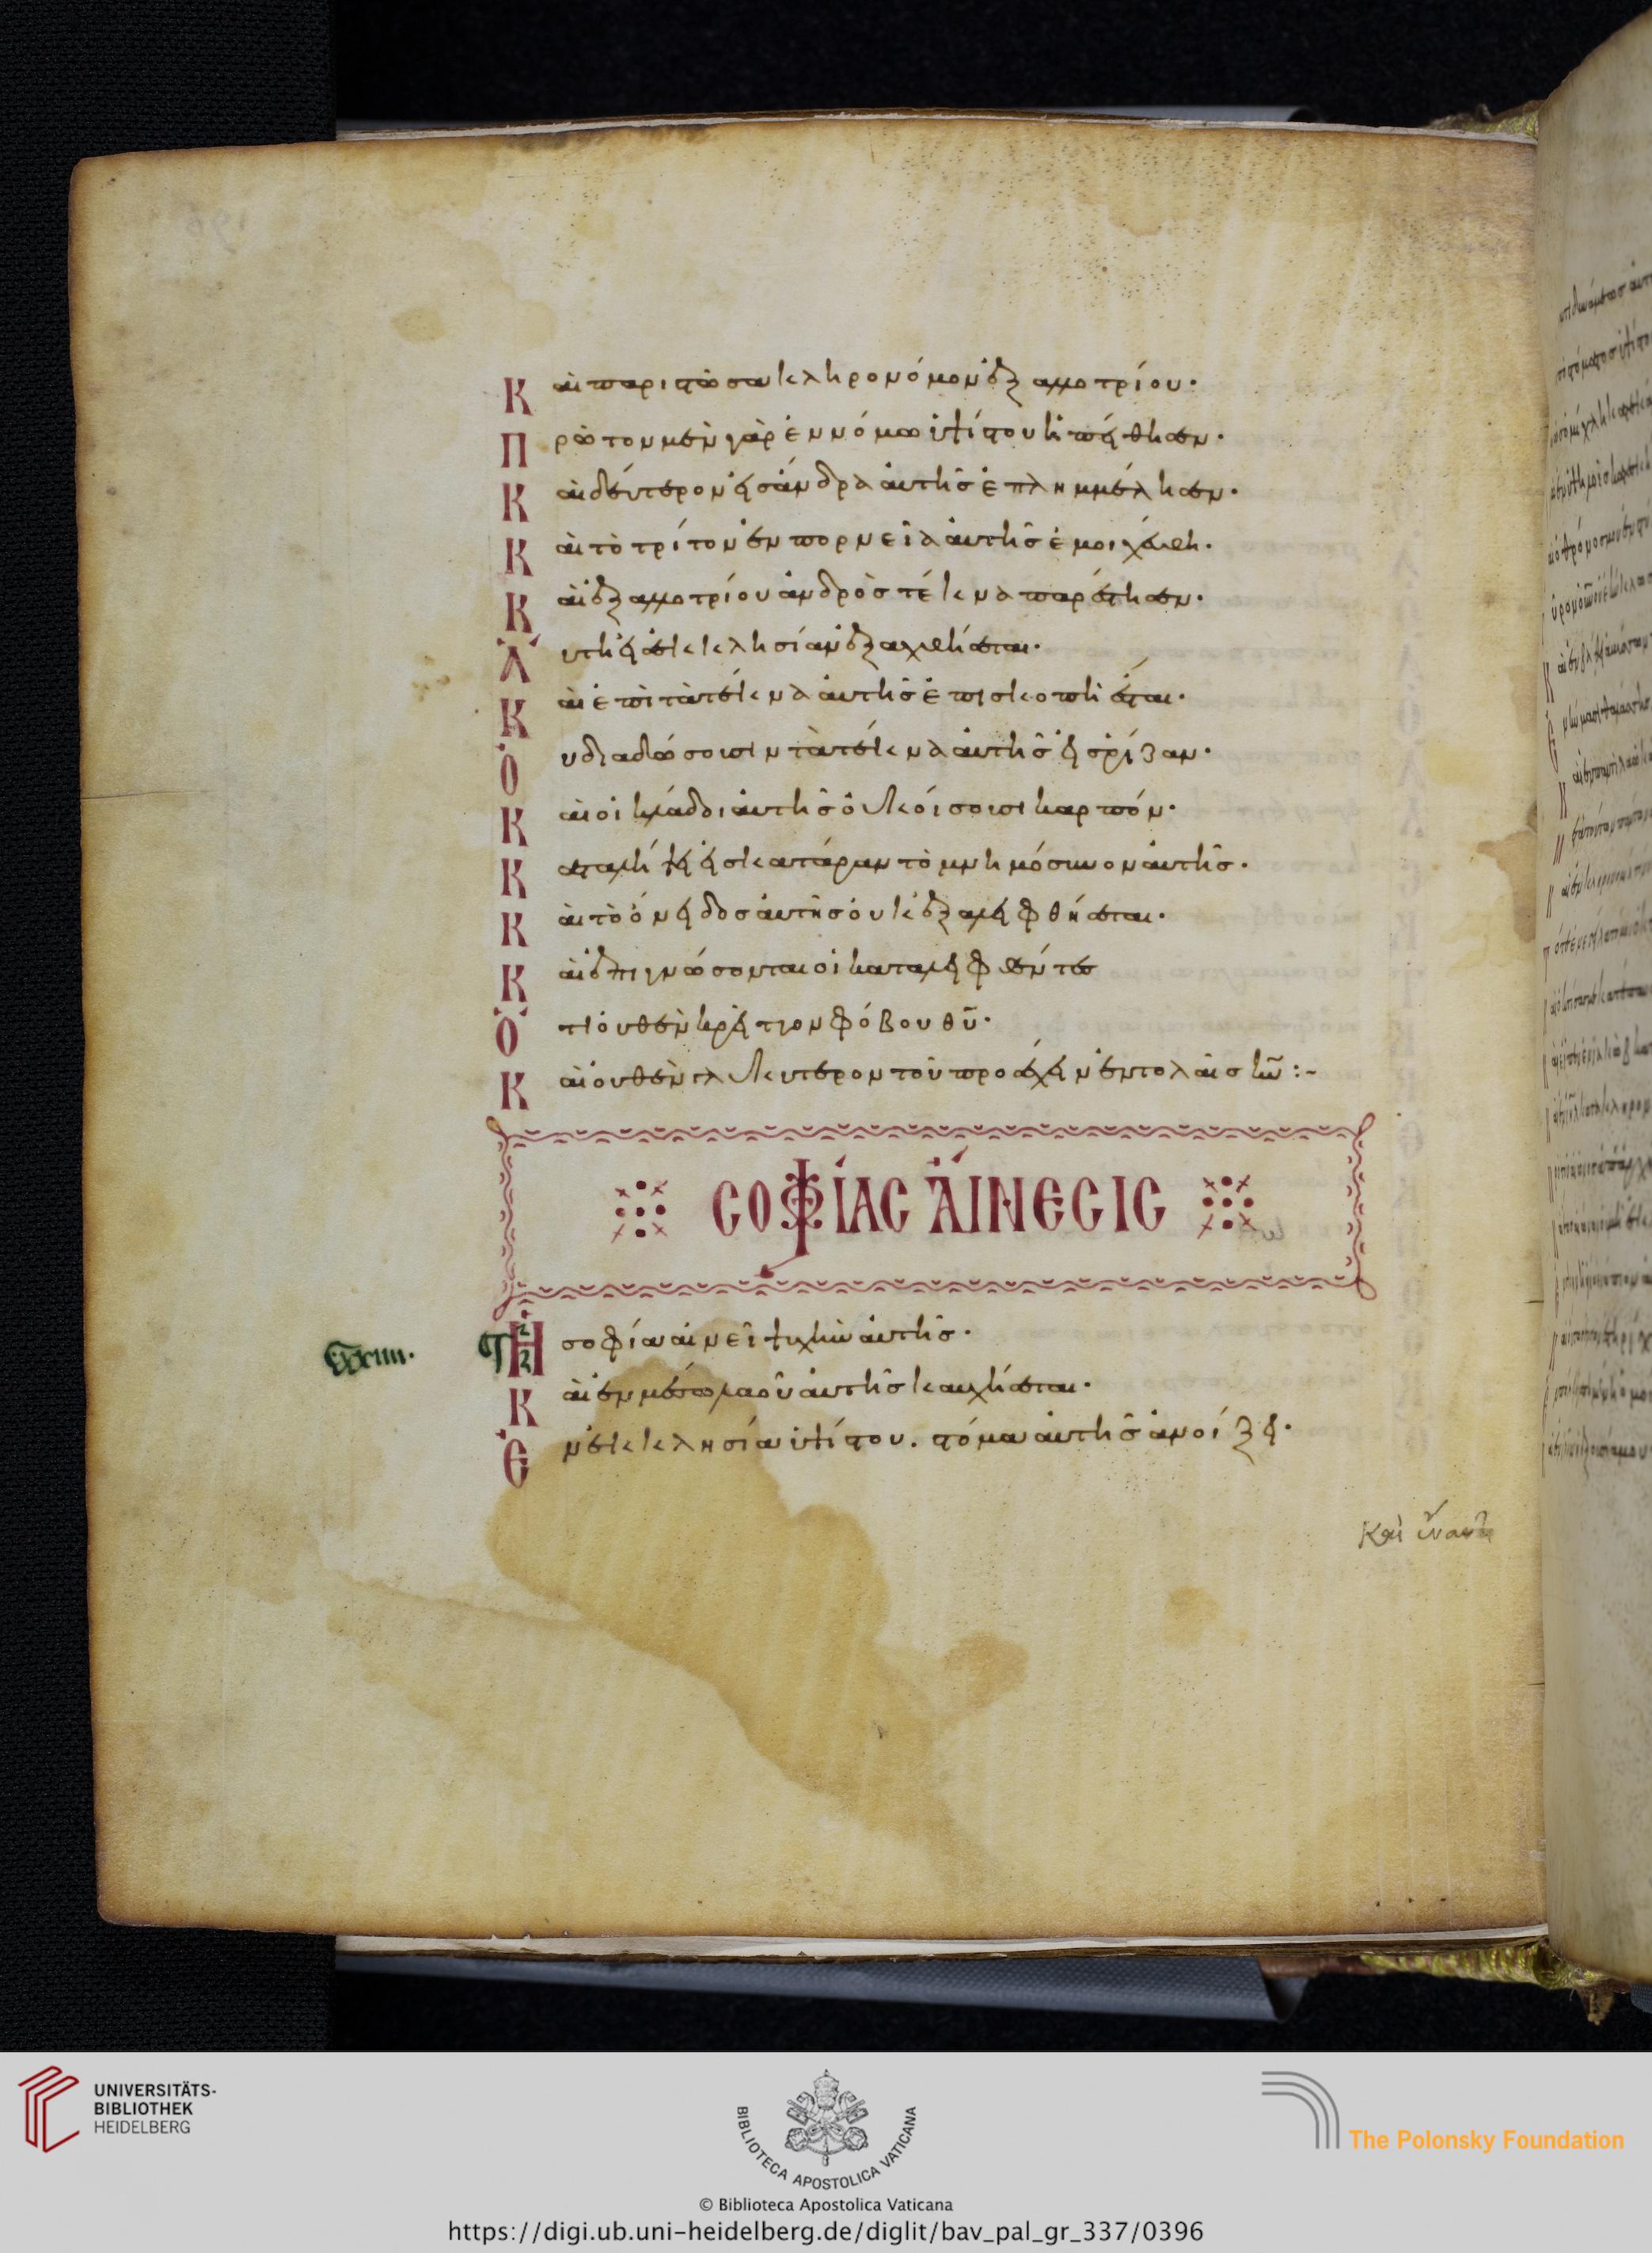 Καὶ παριστῶσα κληρονόμον ἐξ ἀλλοτρίου·
Πρῶτον μὲν γὰρ ἐν νόμω ὑψίστου ἠπείθησεν·
Καὶ δεύτερον εἰς ἄνδρα αὐτῆς ἐπλημμέλησεν·
Καὶ τὸ τρίτον ἐν πορνεῖα αὐτῆς ἐμοιχεύθη·
Καὶ ἐξ ἀλλοτρίου ἀνδρὸς τέκνα παρέστησεν·
Αὕτη εἰς ἐκκλησίαν ἐξαχθήσεται·
Καὶ ἐπὶ τὰ τέκνα αὐτῆς ἐπισκοπὴ ἔσται·
Οὐ διαδώσουσιν τὰ τέκνα αὐτῆς εἰς ῥίζαν·
Καὶ οἱ κλάδοι αὐτῆς οὐκ οἴσουσι καρπόν·
Καταλήψει εἰς κατάραν τὸ μνημόσυνον αὐτῆς·
Καὶ τὸ ὄνειδος αὐτῆς οὐκ ἐξαλειφθήσεται·
Καὶ ἐπιγνώσονται οἱ καταλειφθέντες
Ὅτι οὐθὲν κρεῖττον φόβου θῦ·
Καὶ οὐθὲν γλυκύτερον τοῦ προσέχειν ἐντολαῖς κῦ:~
СΟΦΊΑС ἌΙΝЄСΙС
Ἡ σοφία αἰνεῖ ψυχὴν αὐτῆς·
Καὶ ἐν μέσω λαοῦ αὐτῆς καυχήσεται·
Ἐν ἐκκλησία ὑψίστου. στόμα αὐτῆς ἀνοίξει·
UNIVERSITÄTS-
BIBLIOTHEK
HEIDELBERG
BIBLIOTECA APOSTOLICA VATICANA
The Polonsky Foundation
© Biblioteca Apostolica Vaticana
https://digi.ub.uni-heidelberg.de/diglit/bav_pal_gr_337/0396